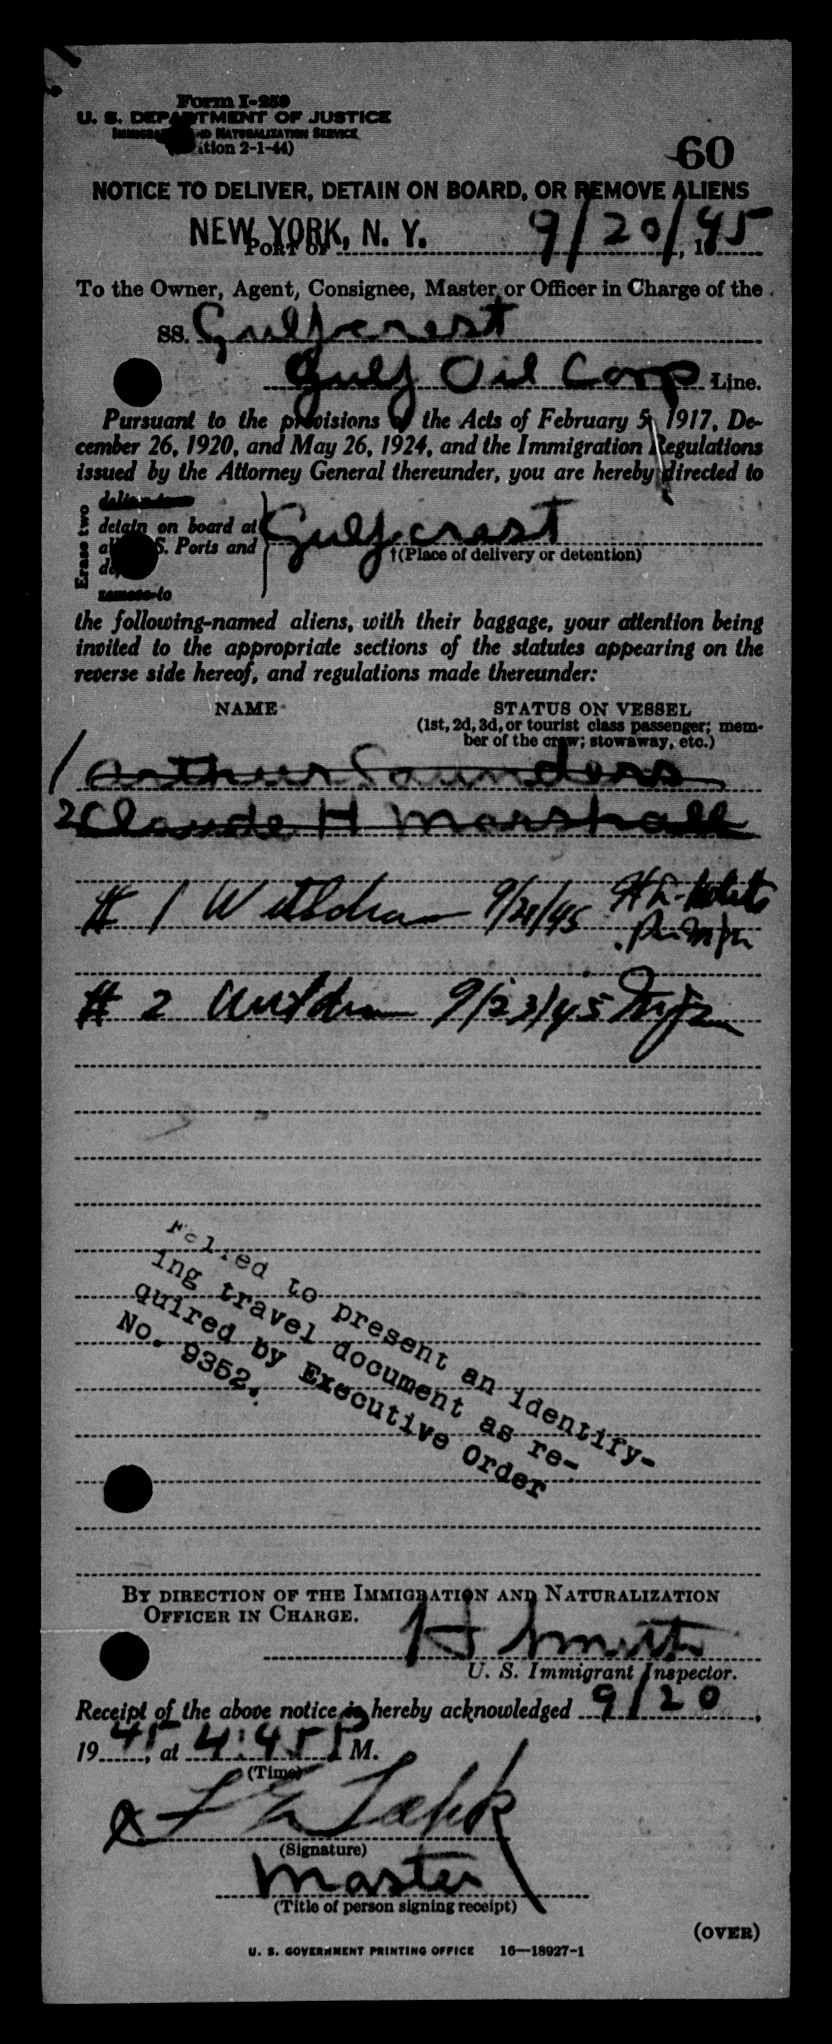 Form I-259
U. S. DEPARTMENT OF JUSTICE
IMMIGRATION AND NATURALIZATION SERVICE
(Edition 2-1-44)
60
NOTICE TO DELIVER, DETAIN ON BOARD, OR REMOVE ALIENS
NEW YORK, N. Y. 9/20/45
PORT OF , 19
To the Owner, Agent, Consignee, Master, or Officer in Charge of the
SS. Gulfcrest
Gulf Oil Corp Line.
Pursuant to the provisions of the Acts of February 5, 1917, De-
cember 26, 1920, and May 26, 1924, and the Immigration Regulations
issued by the Attorney General thereunder, you are hereby directed to
Erase two
detain on board at Gulfcrest
S. Ports and †(Place of delivery or detention)
remove to
the following-named aliens, with their baggage, your attention being
invited to the appropriate sections of the statutes appearing on the
reverse side hereof, and regulations made thereunder:
NAME STATUS ON VESSEL
(1st, 2d, 3d, or tourist class passenger; mem-
ber of the crew; stowaway, etc.)
1 Arthur Saunders
2 Claude H Marshall
# 1 Withdrawn 9/21/45
# 2 Withdrawn 9/23/45
Failed to present an identify-
ing travel document as re-
quired by Executive Order
No. 9352.
BY DIRECTION OF THE IMMIGRATION AND NATURALIZATION
OFFICER IN CHARGE.
H Smith
U. S. Immigrant Inspector.
Receipt of the above notice is hereby acknowledged 9/20,
1945, at 4:45 P M.
(Time)
(Signature)
Master
(Title of person signing receipt)
(OVER)
U. S. GOVERNMENT PRINTING OFFICE 16—18927-1